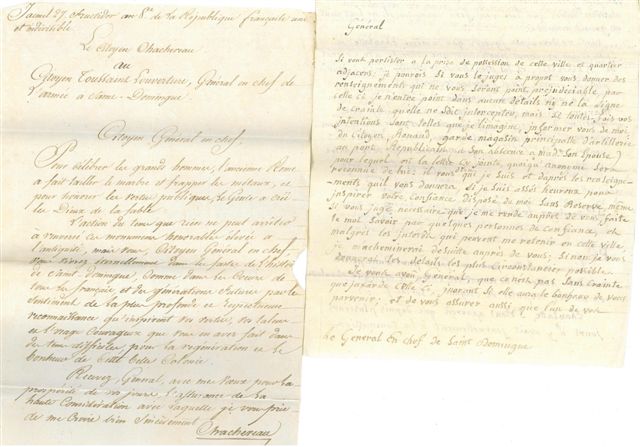 Jacmel 27 fructidor an 8e de la République française une
et indivisible
Le Citoyen Chachereau
au
Citoyen Toussaint Louverture, Général en chef de
l'armée à Saint-Domingue
Citoyen Général en chef
Pour célébrer les grands hommes, l'ancienne Rome
a fait tailler le marbre et frapper les métaux, et
pour honorer les vertus publiques, la Grèce a créé
les Dieux de la fable
L'action du tems que rien ne peut arrêter
a renversé ce monument honorable élevé à
l'antiquité mais vous Citoyen Général en chef
vous vivrez éternellement dans les fastes de l'histoire
de Saint-domingue, comme dans les Coeurs de
tous les français et des générations futures par le
Sentiment de la plus profonde et respectueuse
reconnaissance qu'inspirent vos vertus, vos talens
et l'usage Courageux que vous en avez fait dans
des tems difficiles, pour la régénération et le
bonheur de Cette belle Colonie.
Recevez Général, avec mes voeux pour la
prospérité de vos jours l'assurance de la
haute Considération avec laquelle je vous prie
de me Croire bien Sincèrement
Chachereau
Général
Si vous persister a la prise de possession de cette ville et quartier
adjacens, je pourois Si vous le jugez à propos vous donner des
renseignements qui ne vous Seront point préjudiciable par
celle ci je n'entre point dans aucuns details vu la
crainte quelle ne Soit interceptée, mais Si toutes fois vos
intentions Sont telles que je l'imagine, informer vous de moi
du Citoyen Renaud, garde magasin principalle d'artillerie
au port Républicain
pour lequel ou la lettre Cy jointe, quoiqu'anonime Sera
reconnue de lui; il vous dira qui je Suis et d'après les renseigne-
ments quil vous donnera Si je Suis assez heureux pour
inspirer votre Confiance disposé de moi Sans Reserve même
Si vous jugé nécessaire que je me rende auprès de vous, faite
le moi Savoir par quelques personnes de Confiance, et
malgrés les interdits qui peuvent me retenir en cette ville
je m'acheminerai desuite auprès de vous; Si non je vous
donnerai les détails les plus Circonstancier possible
Je vous avoû Général, que ce n'est pas Sans crainte
que je garde Celle Ci, ignorant Si elle aura le bonheur de vous
parvenir; et de vous assurer aussi que l'un de vos
Le Général En Chef de Saint Domingue